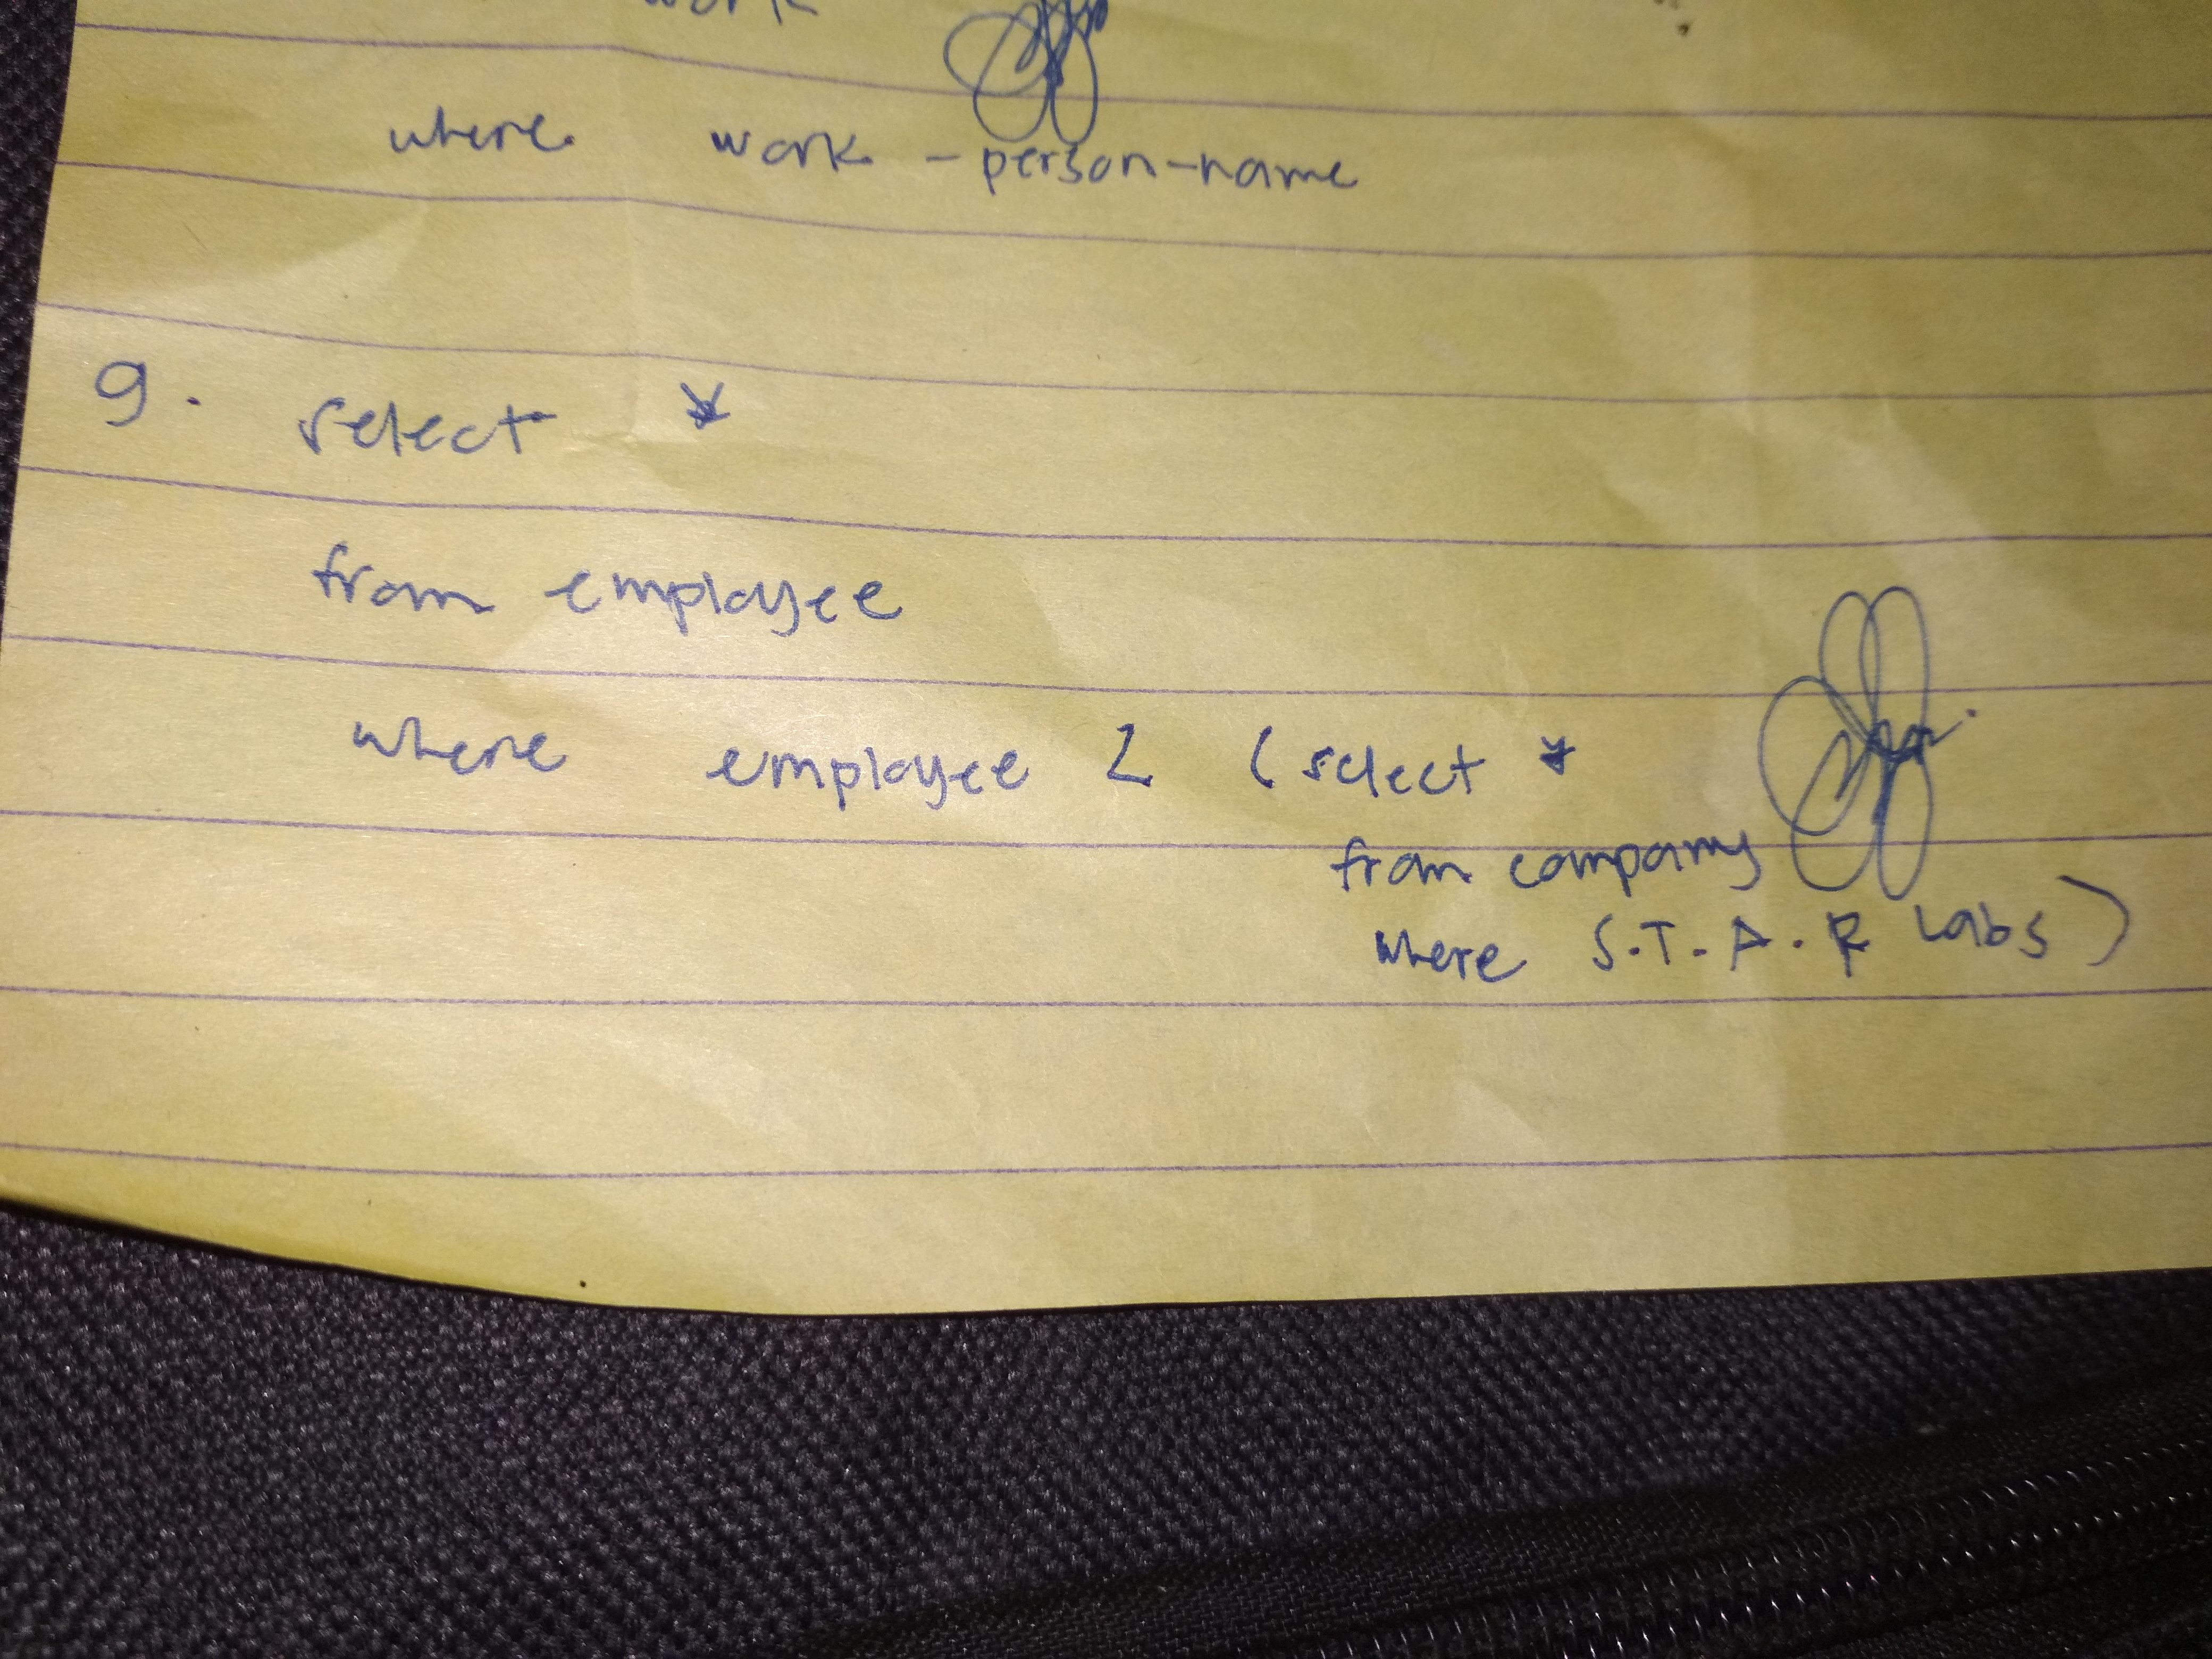 work
where work - person-name
9. select *
from employee
where employee < (select *
from company
where S.T.A.R Labs)